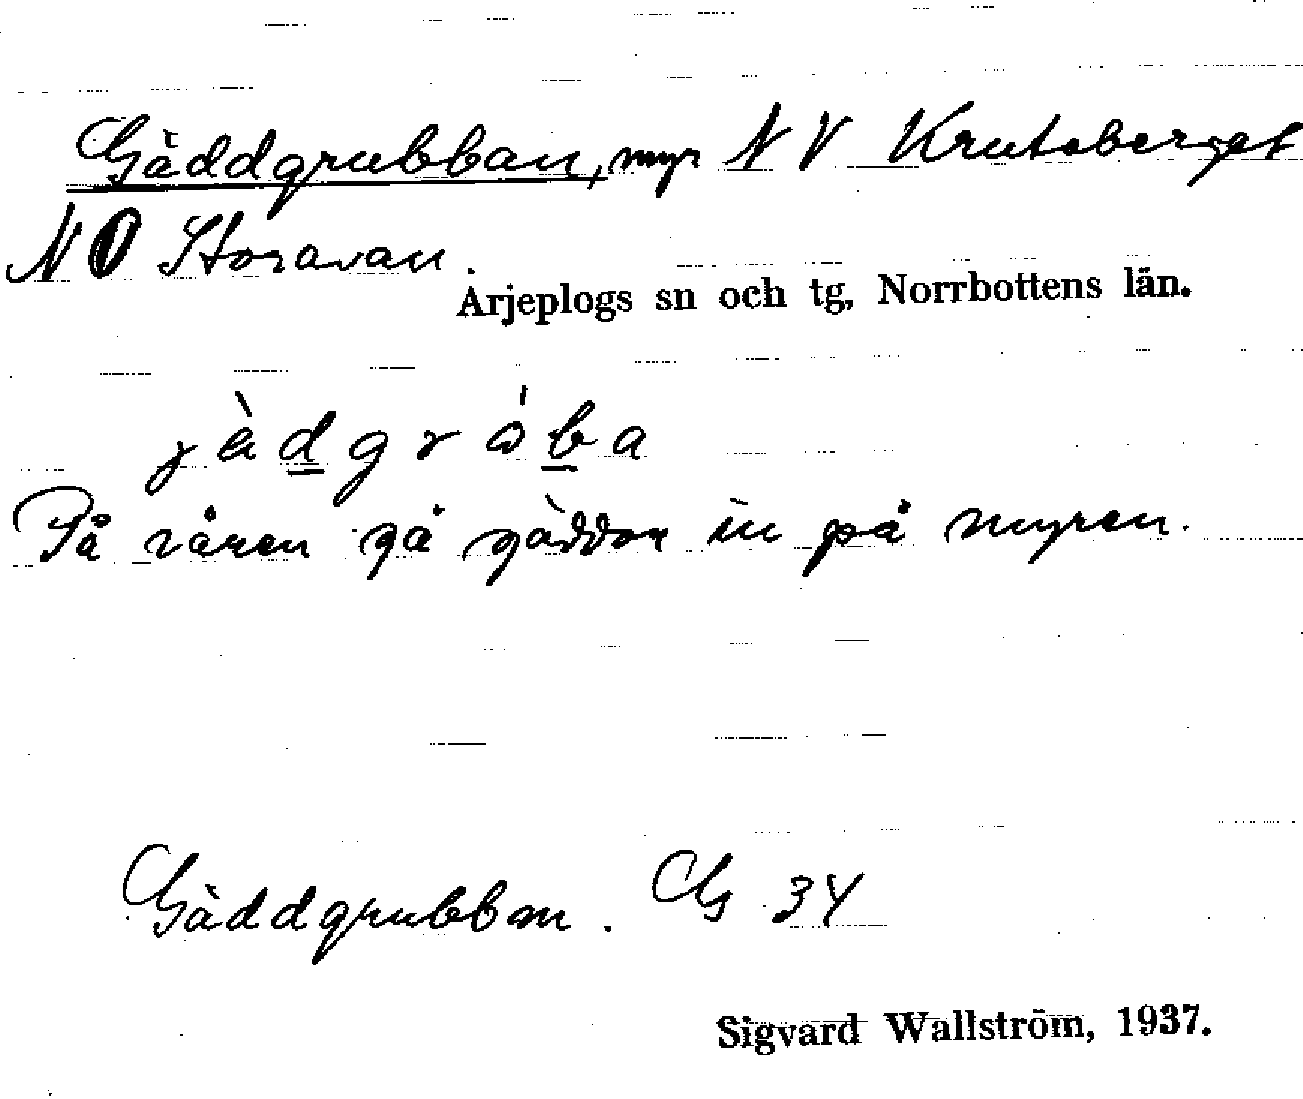 Gäddgrubban, myr NV Krutoberget
NO Storavan.
Arjeplogs sn och tg, Norrbottens län.
jädgròba
På våren gå gäddor in på myren.
Gäddgrubban. G 34
Sigvard Wallström, 1937.